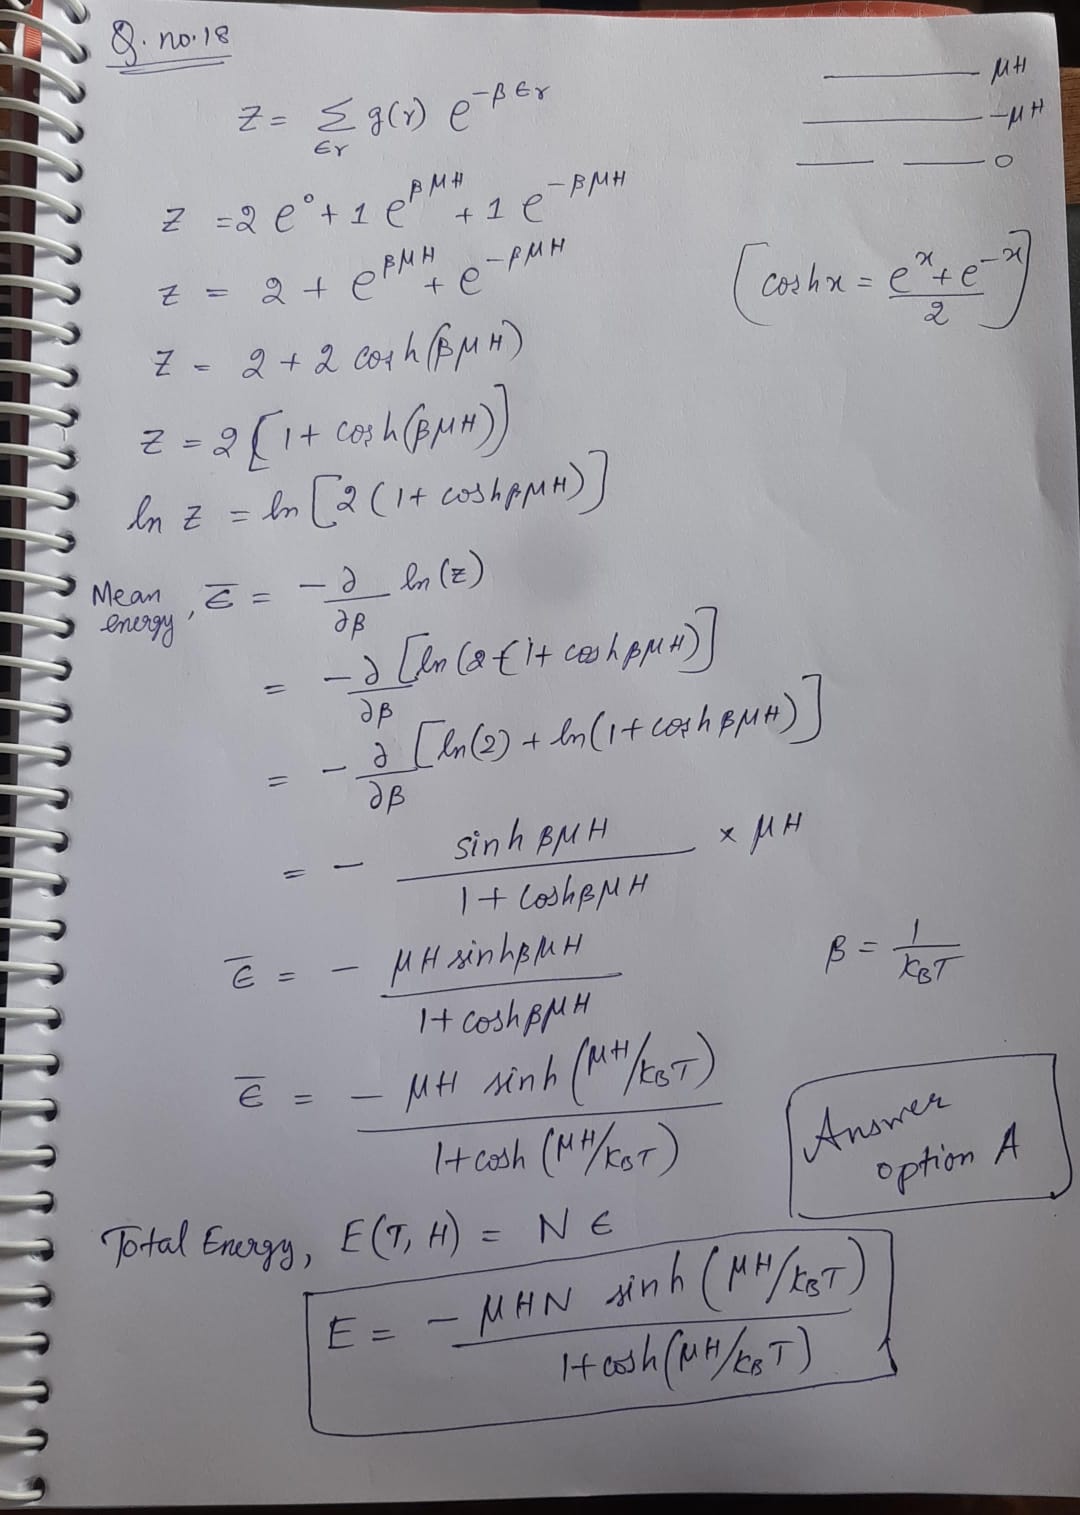 Q. no. 18
μH
-μH
0
Z = Σ_{εr} g(r) e^{-βεr}
Z = 2e^0 + 1 e^{βμH} + 1 e^{-βμH}
Z = 2 + e^{βμH} + e^{-βμH}
[cosh x = (e^x + e^{-x})/2]
Z = 2 + 2 cosh(βμH)
Z = 2[1 + cosh(βμH)]
ln Z = ln[2(1 + coshβμH)]
Mean energy, ε̄ = -∂/∂β ln(z)
= -∂/∂β [ln(2{1 + coshβμH)]
= -∂/∂β [ln(2) + ln(1 + coshβμH)]
= - sinhβμH / (1 + coshβμH) × μH
ε̄ = - μH sinhβμH / (1 + coshβμH)
β = 1/K_BT
ε̄ = - μH sinh(μH/K_BT) / (1 + cosh(μH/K_BT))
Answer
option A
Total Energy, E(T, H) = Nε
E = - μHN sinh(μH/k_BT) / (1 + cosh(μH/k_BT))